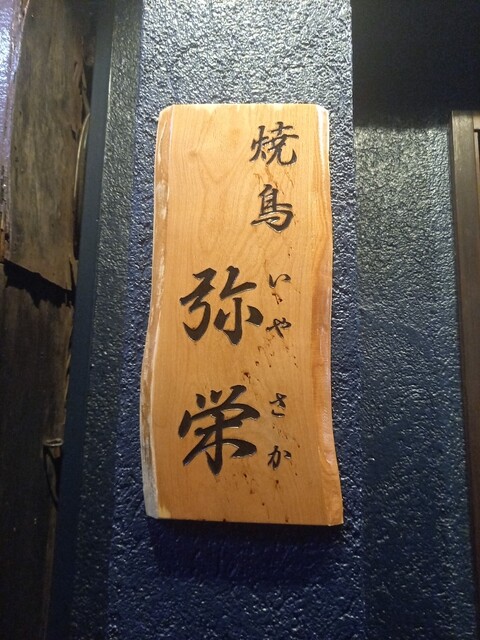 焼鳥
いやさか
弥栄